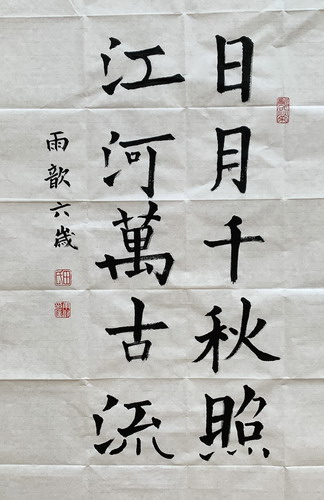 日月千秋照
江河萬古流
雨歆六歲